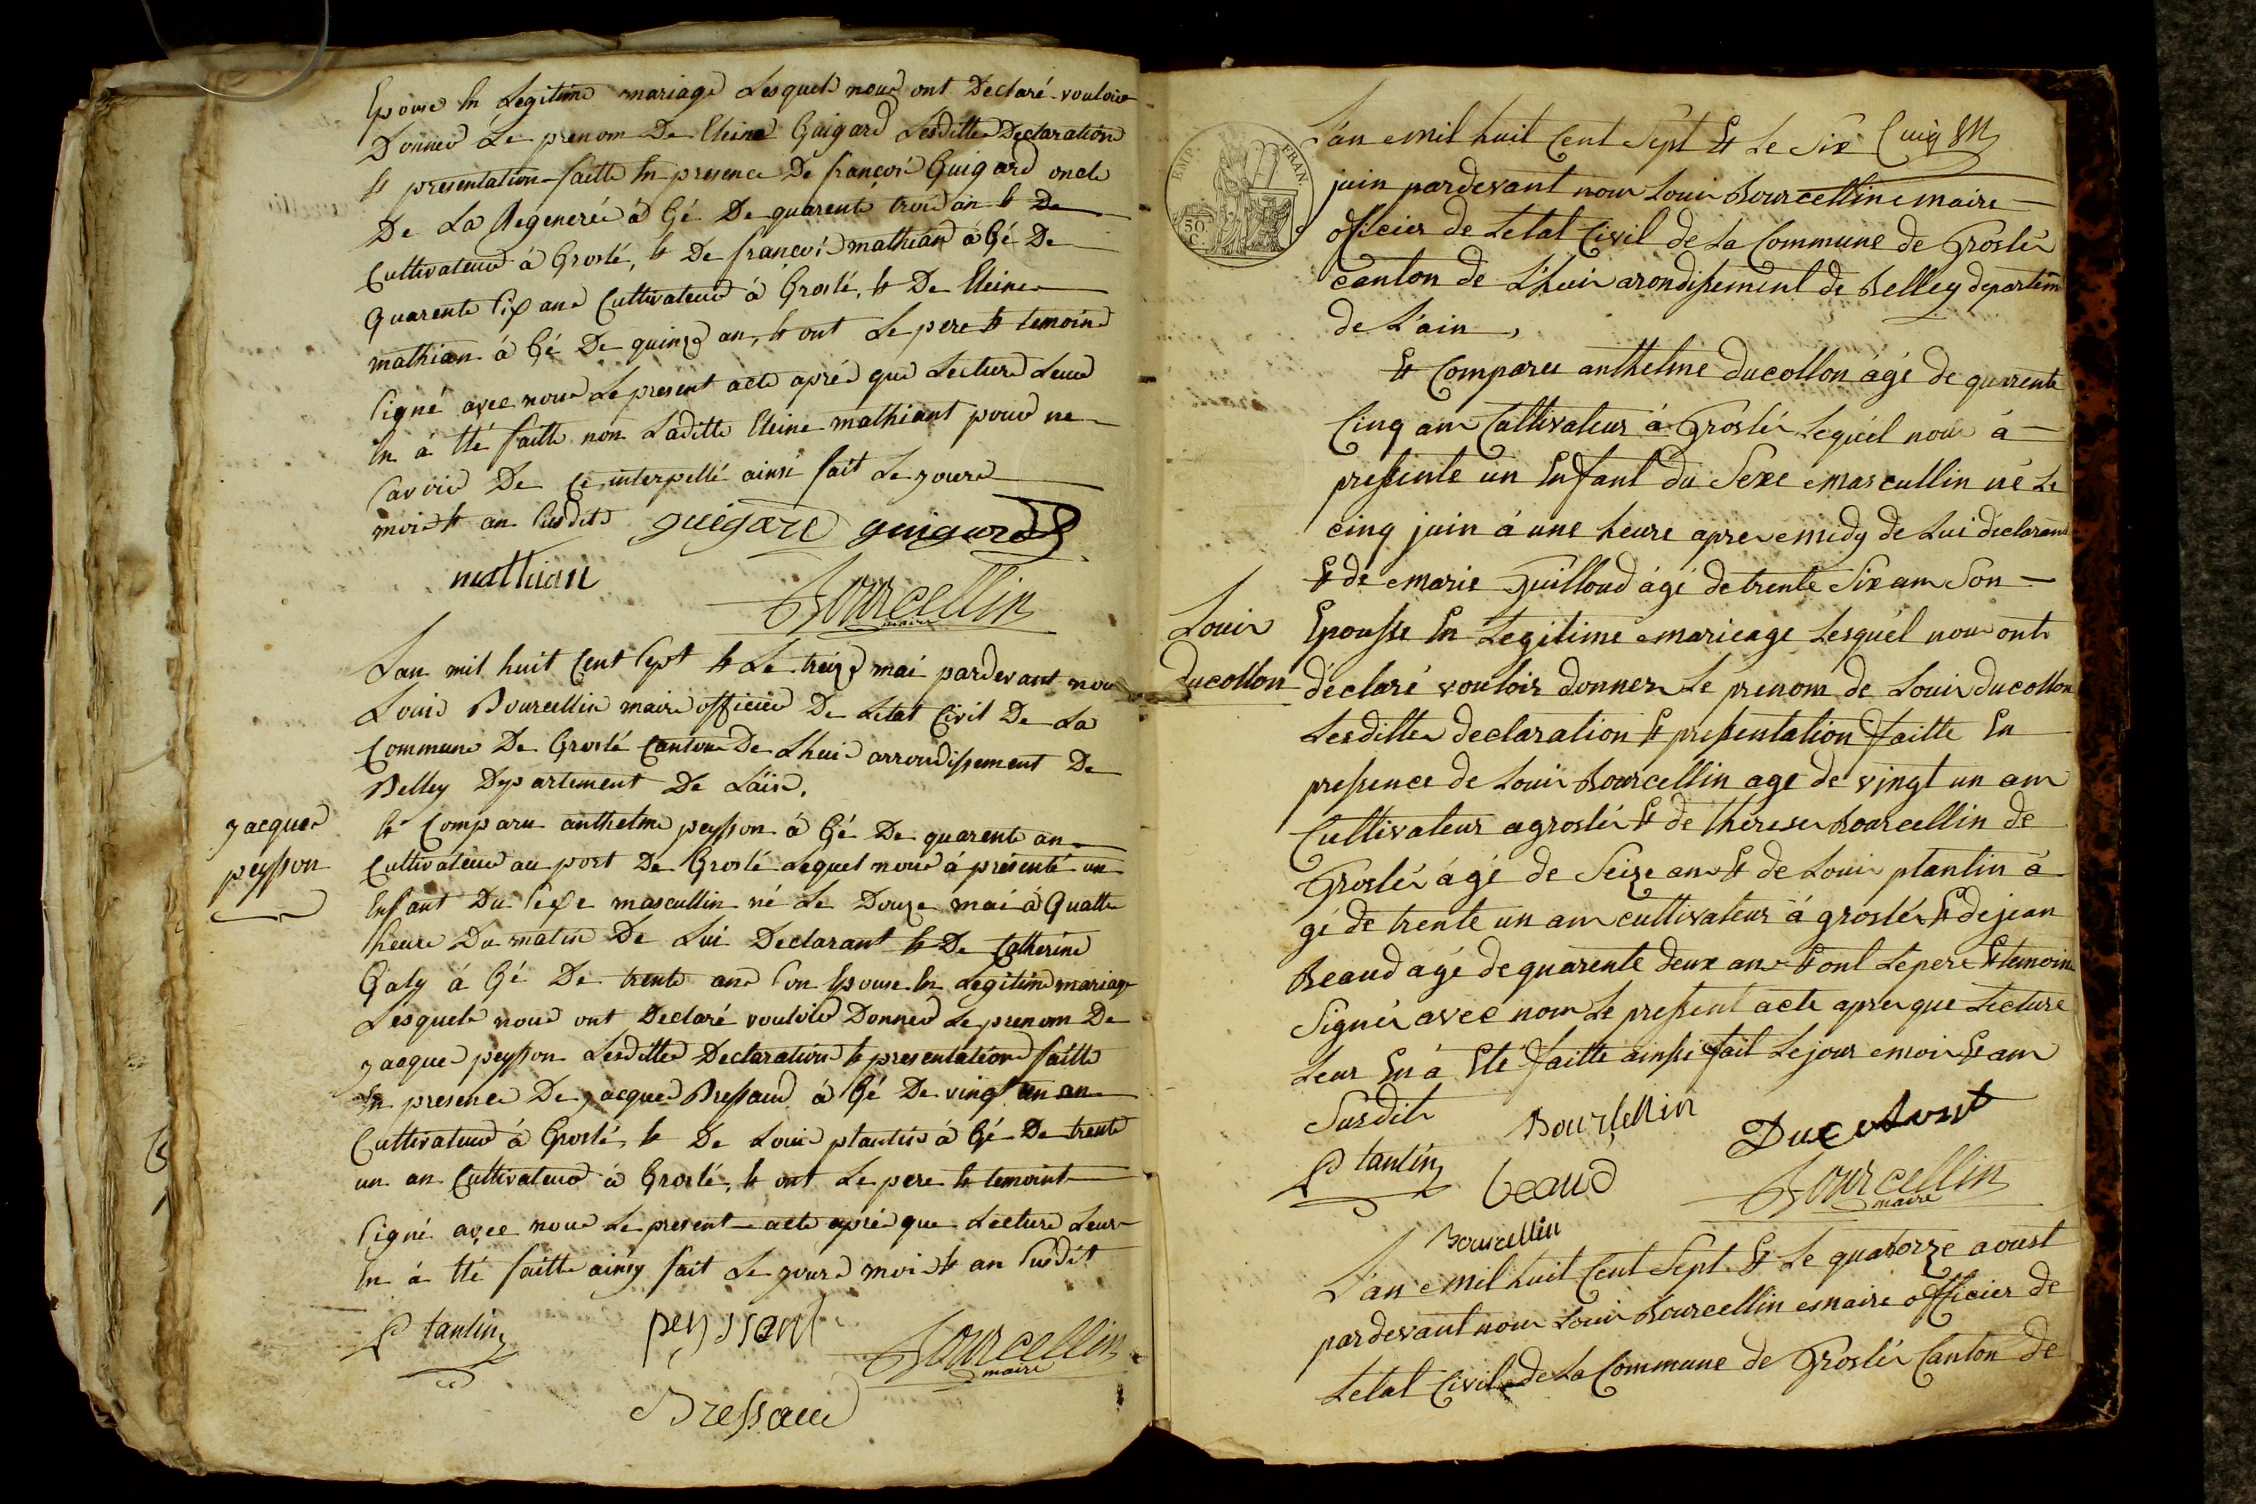 Epouse En Legitime mariage Lesquels nous ont Declaré vouloir
Donner Le prenom De Eleine Guigard Lesditte Declaration
Et presentation faitte En presence De françois Guigard oncle
De La Regenerée à Gé De quarente trois an Et De
Cultivateur à Groslé, Et De françois mathian à Gé De
quarente six ans Cultivateur à Groslé, Et De Eleine
mathian à Gé De quinze an, Et ont Le pere Et temoins
signé avec nous Le present acte aprés que Lecture Leur
En à Eté faitte non Laditte Eleine mathiant pour ne
savoir De ce interpellé ainsi fait Le jours
mois Et an susdits guigard guigard
mathian Bourcellin
maire
Lan mil huit Cent sept Et Le treize mai pardevant nous
Louis Bourcellin maire officier De Letat Civil De La
Commune De Groslé Canton De Lhuis arrondissement De
Belley Departement De Lain.
jacques
peysson
Et Comparu anthelme peysson à Gé De quarente an
Cultivateur au port De Groslé Lequel nous à présenté un
Enfant Du sexe mascullin né Le Douze mai à Quattre
heure Du matin De Lui Declarant Et De Catherine
Galy à Gé De trente ans son Epouse En Legitime mariage
Lesquels nous ont Declaré vouloir Donner Le prenom De
jacque peysson Lesditte Declaration Et presentation faitte
En presence De jacque Bressaud à Gé De vingt un an
Cultivateur à Groslé, Et De Louis plantin à Gé De trente
un an Cultivateur à Groslé, Et ont Le pere Et temoint
signé avec nous Le present acte aprés que Lecture Leur
En à Eté faitte ainsy fait Le jours mois Et an susdit
P tantin peyssont Bourcellin
maire
Bressaud
EMP. FRAN.
50 C.
L'an mil huit Cent Sept Et Le Six
juin pardevant nous Louis Bourcelline maire
officier de Letat Civil de La Commune de Groslér
canton de L'huis arondissement de Belley departem
de L'ain,
Et Comparu anthelme ducollon ágé de quarente
Cinq ans Cultivateur à Groslér Lequél nous à
pressente un Enfant du Sexe mascullin né Le
cinq juin à une heure apres midy de Lui déclarant
Et de marie Guilloud ágé de trente Six ans Son
Louis
ducollon
Epousse En Legitime marieage Lesquél nous ont
déclaré vouloir donner Le prenom de Louis ducollon
Lesditte declaration Et pressentation faitte En
pressence de Louis Bourcellin age de vingt un ans
Cultivateur agroslér Et de thérese Bourcellin de
Groslér ágé de Seize ans Et de Louis plantin à
gé de trente un ans cultivateur á groslér Et de jean
Beaud ágé de quarente deux ans Et ont Le pere Et temoins
Signér avec nous Le pressent acte apres que Lecture
Leur En á Eté faitte ainssi fait Le jour mois Et an
Susdits Bourcellin Ducolont
P tantin beaud Bourcellin
maire
Bourcellin
L'an mil huit Cent Sept Et Le quatorze aoust
pardevant nous Louis Bourcellin maire officier de
Letat Civil de La Commune de Groslér Canton de